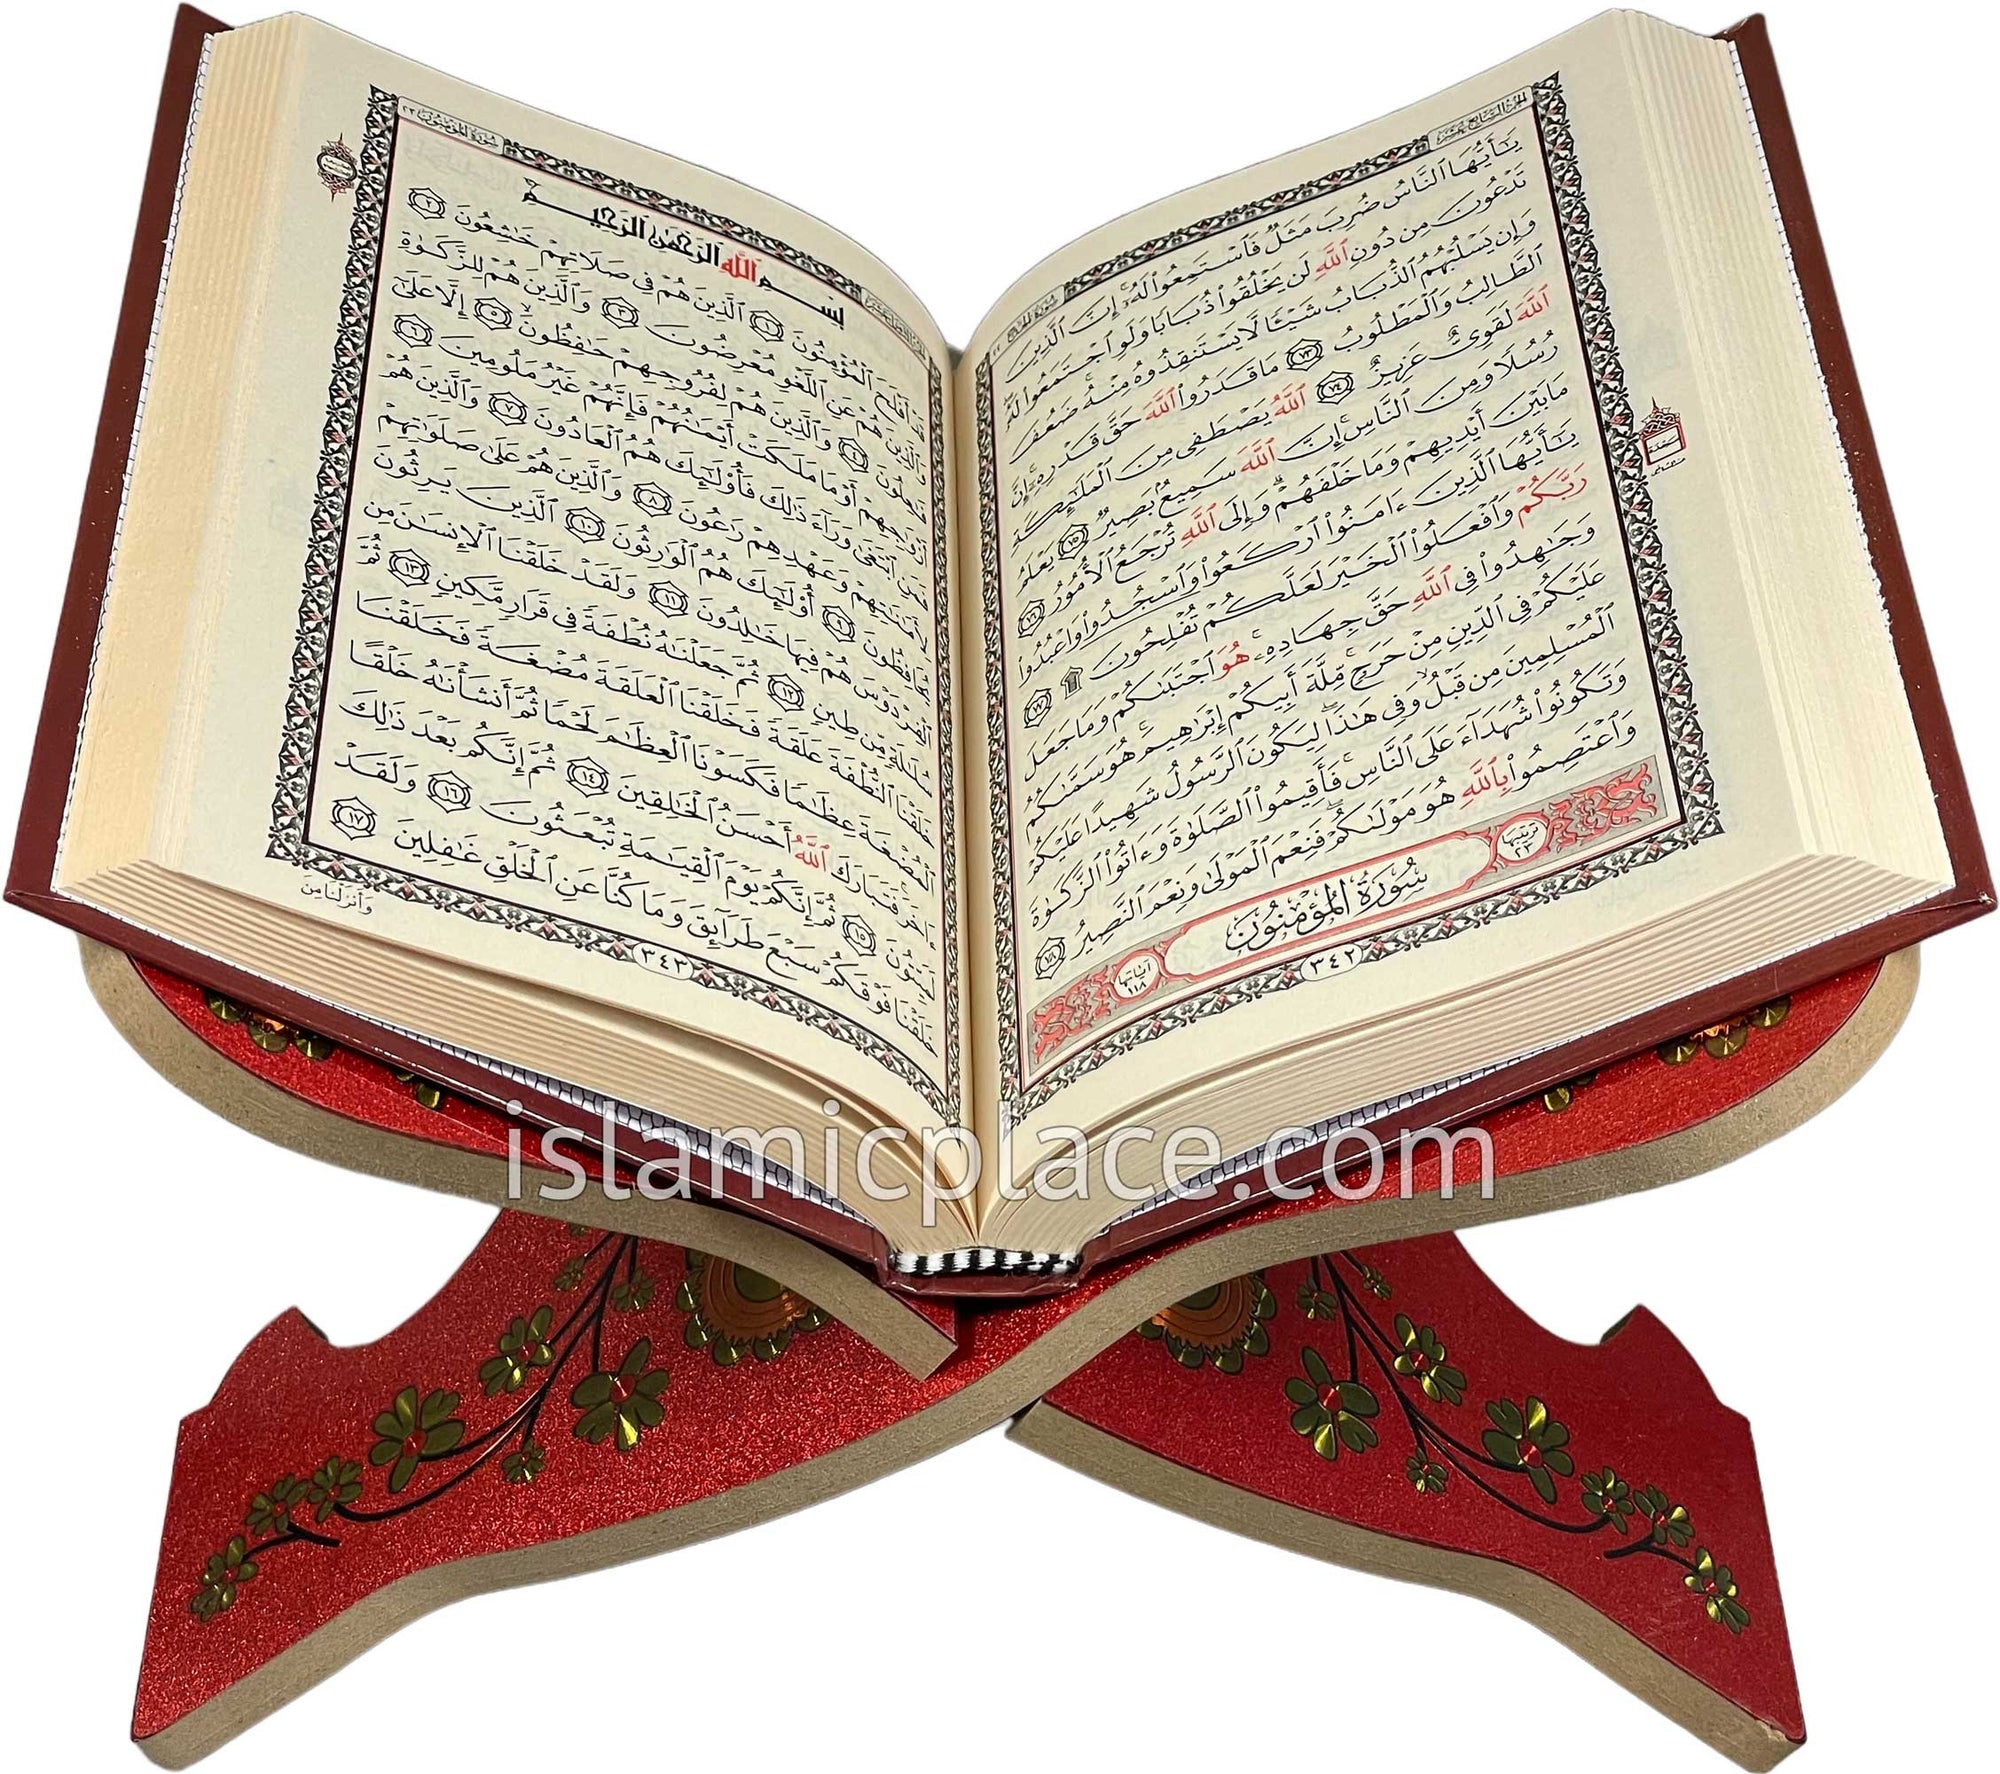 الجزء السابع عشر
سورة الحج ٢٢
يَـٰٓأَيُّهَا ٱلنَّاسُ ضُرِبَ مَثَلٌ فَٱسْتَمِعُوا۟ لَهُۥٓ ۚ إِنَّ ٱلَّذِينَ
تَدْعُونَ مِن دُونِ ٱللَّهِ لَن يَخْلُقُوا۟ ذُبَابًا وَلَوِ ٱجْتَمَعُوا۟ لَهُۥ ۖ
وَإِن يَسْلُبْهُمُ ٱلذُّبَابُ شَيْـًٔا لَّا يَسْتَنقِذُوهُ مِنْهُ ۚ ضَعُفَ
ٱلطَّالِبُ وَٱلْمَطْلُوبُ ٧٣ مَا قَدَرُوا۟ ٱللَّهَ حَقَّ قَدْرِهِۦٓ ۗ إِنَّ
ٱللَّهَ لَقَوِىٌّ عَزِيزٌ ٧٤ ٱللَّهُ يَصْطَفِى مِنَ ٱلْمَلَـٰٓئِكَةِ
رُسُلًا وَمِنَ ٱلنَّاسِ ۚ إِنَّ ٱللَّهَ سَمِيعٌۢ بَصِيرٌ ٧٥ يَعْلَمُ
مَا بَيْنَ أَيْدِيهِمْ وَمَا خَلْفَهُمْ ۗ وَإِلَى ٱللَّهِ تُرْجَعُ ٱلْأُمُورُ ٧٦
يَـٰٓأَيُّهَا ٱلَّذِينَ ءَامَنُوا۟ ٱرْكَعُوا۟ وَٱسْجُدُوا۟ وَٱعْبُدُوا۟
رَبَّكُمْ وَٱفْعَلُوا۟ ٱلْخَيْرَ لَعَلَّكُمْ تُفْلِحُونَ ۩ ٧٧
وَجَـٰهِدُوا۟ فِى ٱللَّهِ حَقَّ جِهَادِهِۦ ۚ هُوَ ٱجْتَبَىٰكُمْ وَمَا جَعَلَ
عَلَيْكُمْ فِى ٱلدِّينِ مِنْ حَرَجٍ ۚ مِّلَّةَ أَبِيكُمْ إِبْرَٰهِيمَ ۚ هُوَ سَمَّىٰكُمُ
ٱلْمُسْلِمِينَ مِن قَبْلُ وَفِى هَـٰذَا لِيَكُونَ ٱلرَّسُولُ شَهِيدًا عَلَيْكُمْ
وَتَكُونُوا۟ شُهَدَآءَ عَلَى ٱلنَّاسِ ۚ فَأَقِيمُوا۟ ٱلصَّلَوٰةَ وَءَاتُوا۟ ٱلزَّكَوٰةَ
وَٱعْتَصِمُوا۟ بِٱللَّهِ هُوَ مَوْلَىٰكُمْ ۖ فَنِعْمَ ٱلْمَوْلَىٰ وَنِعْمَ ٱلنَّصِيرُ ٧٨
ترتيبها ٢٣ سُورَةُ المُؤْمِنُون آياتها ١١٨
٣٤٢
سجدة
سورة المؤمنون ٢٣
بِسْمِ ٱللَّهِ ٱلرَّحْمَـٰنِ ٱلرَّحِيمِ
قَدْ أَفْلَحَ ٱلْمُؤْمِنُونَ ١ ٱلَّذِينَ هُمْ فِى صَلَاتِهِمْ خَـٰشِعُونَ ٢
وَٱلَّذِينَ هُمْ عَنِ ٱللَّغْوِ مُعْرِضُونَ ٣ وَٱلَّذِينَ هُمْ لِلزَّكَوٰةِ
فَـٰعِلُونَ ٤ وَٱلَّذِينَ هُمْ لِفُرُوجِهِمْ حَـٰفِظُونَ ٥ إِلَّا عَلَىٰٓ
أَزْوَٰجِهِمْ أَوْ مَا مَلَكَتْ أَيْمَـٰنُهُمْ فَإِنَّهُمْ غَيْرُ مَلُومِينَ ٦
فَمَنِ ٱبْتَغَىٰ وَرَآءَ ذَٰلِكَ فَأُو۟لَـٰٓئِكَ هُمُ ٱلْعَادُونَ ٧ وَٱلَّذِينَ هُمْ
لِأَمَـٰنَـٰتِهِمْ وَعَهْدِهِمْ رَٰعُونَ ٨ وَٱلَّذِينَ هُمْ عَلَىٰ صَلَوَٰتِهِمْ
يُحَافِظُونَ ٩ أُو۟لَـٰٓئِكَ هُمُ ٱلْوَٰرِثُونَ ١٠ ٱلَّذِينَ يَرِثُونَ
ٱلْفِرْدَوْسَ هُمْ فِيهَا خَـٰلِدُونَ ١١ وَلَقَدْ خَلَقْنَا ٱلْإِنسَـٰنَ مِن
سُلَـٰلَةٍ مِّن طِينٍ ١٢ ثُمَّ جَعَلْنَـٰهُ نُطْفَةً فِى قَرَارٍ مَّكِينٍ ١٣ ثُمَّ
خَلَقْنَا ٱلنُّطْفَةَ عَلَقَةً فَخَلَقْنَا ٱلْعَلَقَةَ مُضْغَةً فَخَلَقْنَا
ٱلْمُضْغَةَ عِظَـٰمًا فَكَسَوْنَا ٱلْعِظَـٰمَ لَحْمًا ثُمَّ أَنشَأْنَـٰهُ خَلْقًا
ءَاخَرَ ۚ فَتَبَارَكَ ٱللَّهُ أَحْسَنُ ٱلْخَـٰلِقِينَ ١٤ ثُمَّ إِنَّكُم بَعْدَ ذَٰلِكَ
لَمَيِّتُونَ ١٥ ثُمَّ إِنَّكُمْ يَوْمَ ٱلْقِيَـٰمَةِ تُبْعَثُونَ ١٦ وَلَقَدْ
خَلَقْنَا فَوْقَكُمْ سَبْعَ طَرَآئِقَ وَمَا كُنَّا عَنِ ٱلْخَلْقِ غَـٰفِلِينَ ١٧
٣٤٣
وَأَنزَلْنَا مِنَ
islamicplace.com